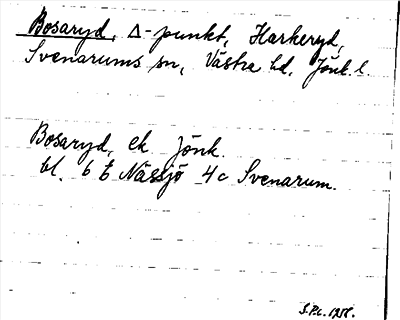 Bosaryd, Δ-punkt, Harkeryd,
Svenarums sn, Västra hd, Jönk. l.
Bosaryd, ek Jönk.
bl. 6 E Nässjö 4c Svenarum.
S.P.L. 1958.